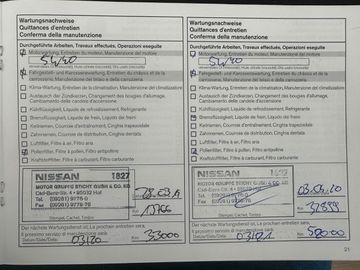 Wartungsnachweise
Quittances d'entretien
Conferma della manutenzione
Durchgeführte Arbeiten, Travaux effectués, Operazioni eseguite
Motorwartung, Entretien du moteur, Manutenzione del motore
5W40
Fahrgestell- und Karosseriewartung, Entretien du châssis et de la
carrosserie, Manutenzione del telaio e della carrozzeria
Klima-Wartung, Entretien de la climatisation, Manutenzione del climatizzatore
Austausch der Zündkerzen, Changement des bougies d'allumage,
Cambiamento delle candele d'accensione
Kühlflüssigkeit, Liquide de refroidissement, Refrigerante
Bremsflüssigkeit, Liquide de frein, Liquido dei freni
Keilriemen, Courroie d'entraînement, Cinghia trapezoidale
Zahnriemen, Courroie de distribution, Cinghia dentata
Luftfilter, Filtre à air, Filtro aria
Pollenfilter, Filtre à pollen, Filtro antipolline
Kraftstofffilter, Filtre à carburant, Filtro carburante
NISSAN 1827
MOTOR GRUPPE STICHT GmbH & CO. KG
Carl-Benz-Str. 4 • 95032 Hof
Tel. (09281) 9776-0
Fax (09281) 9776-76
Stempel, Cachet, Timbro
Der nächste Wartungsdienst, Le prochain entretien sera,
Il prossimo servizio di manutenzione sarà
Datum/Date/Data: 03/20 Km 33000
Wartungsnachweise
Quittances d'entretien
Conferma della manutenzione
Durchgeführte Arbeiten, Travaux effectués, Operazioni eseguite
Motorwartung, Entretien du moteur, Manutenzione del motore
5W40
Fahrgestell- und Karosseriewartung, Entretien du châssis et de la
carrosserie, Manutenzione del telaio e della carrozzeria
Klima-Wartung, Entretien de la climatisation, Manutenzione del climatizzatore
Austausch der Zündkerzen, Changement des bougies d'allumage,
Cambiamento delle candele d'accensione
Kühlflüssigkeit, Liquide de refroidissement, Refrigerante
Bremsflüssigkeit, Liquide de frein, Liquido dei freni
Keilriemen, Courroie d'entraînement, Cinghia trapezoidale
Zahnriemen, Courroie de distribution, Cinghia dentata
Luftfilter, Filtre à air, Filtro aria
Pollenfilter, Filtre à pollen, Filtro antipolline
Kraftstofffilter, Filtre à carburant, Filtro carburante
NISSAN 1827
MOTOR GRUPPE STICHT GmbH & CO. KG
Carl-Benz-Str. 4 • 95032 Hof
Tel. (09281) 9776-0
Fax (09281) 9776-76
Stempel, Cachet, Timbro
Der nächste Wartungsdienst, Le prochain entretien sera,
Il prossimo servizio di manutenzione sarà
Datum/Date/Data: 03/21 Km
21